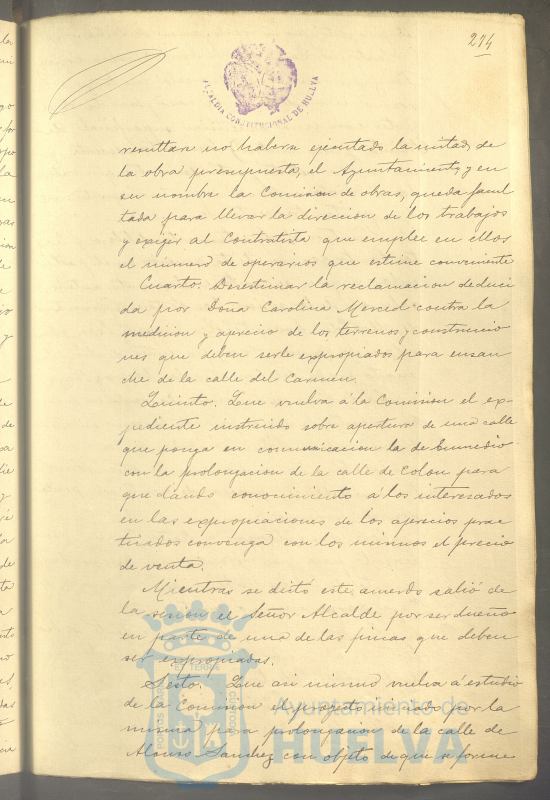 274
ALCALDIA CONSTITUCIONAL DE HUELVA
resultara no haberse ejecutado la mitad de
la obra presupuesta, el Ayuntamiento y en
su nombre la Comision de obras, queda facul
tada para llevar la direccion de los trabajos
y exigir al Contratista que emplee en ellos
el numero de operarios que estime conveniente
Cuarto. Desestimar la reclamacion deduci
da por Doña Carolina Merced contra la
medicion y aprecio de los terrenos y construccio
nes que deben serle expropiados para ensan
che de la calle del Carmen.
Quinto. Que vuelva á la Comision el ex-
pediente instruido sobre apertura de una calle
que ponga en comunicacion la de Enmedio
con la prolongacion de la calle de Colon para
que dando conocimiento á los interesados
en las expropiaciones de los aprecios prac
ticados convenga con los mismos el precio
de venta.
Mientras se dictó este acuerdo salió de
la sesion el Señor Alcalde por ser dueño
en parte de una de las fincas que deben
ser expropiadas.
Sesto. Que asi mismo vuelva á estudio
de la Comision el proyecto iniciado por la
misma para prolongacion de la calle de
Alonso Sanchez con objeto de que se forme
Ayuntamiento de
HUELVA